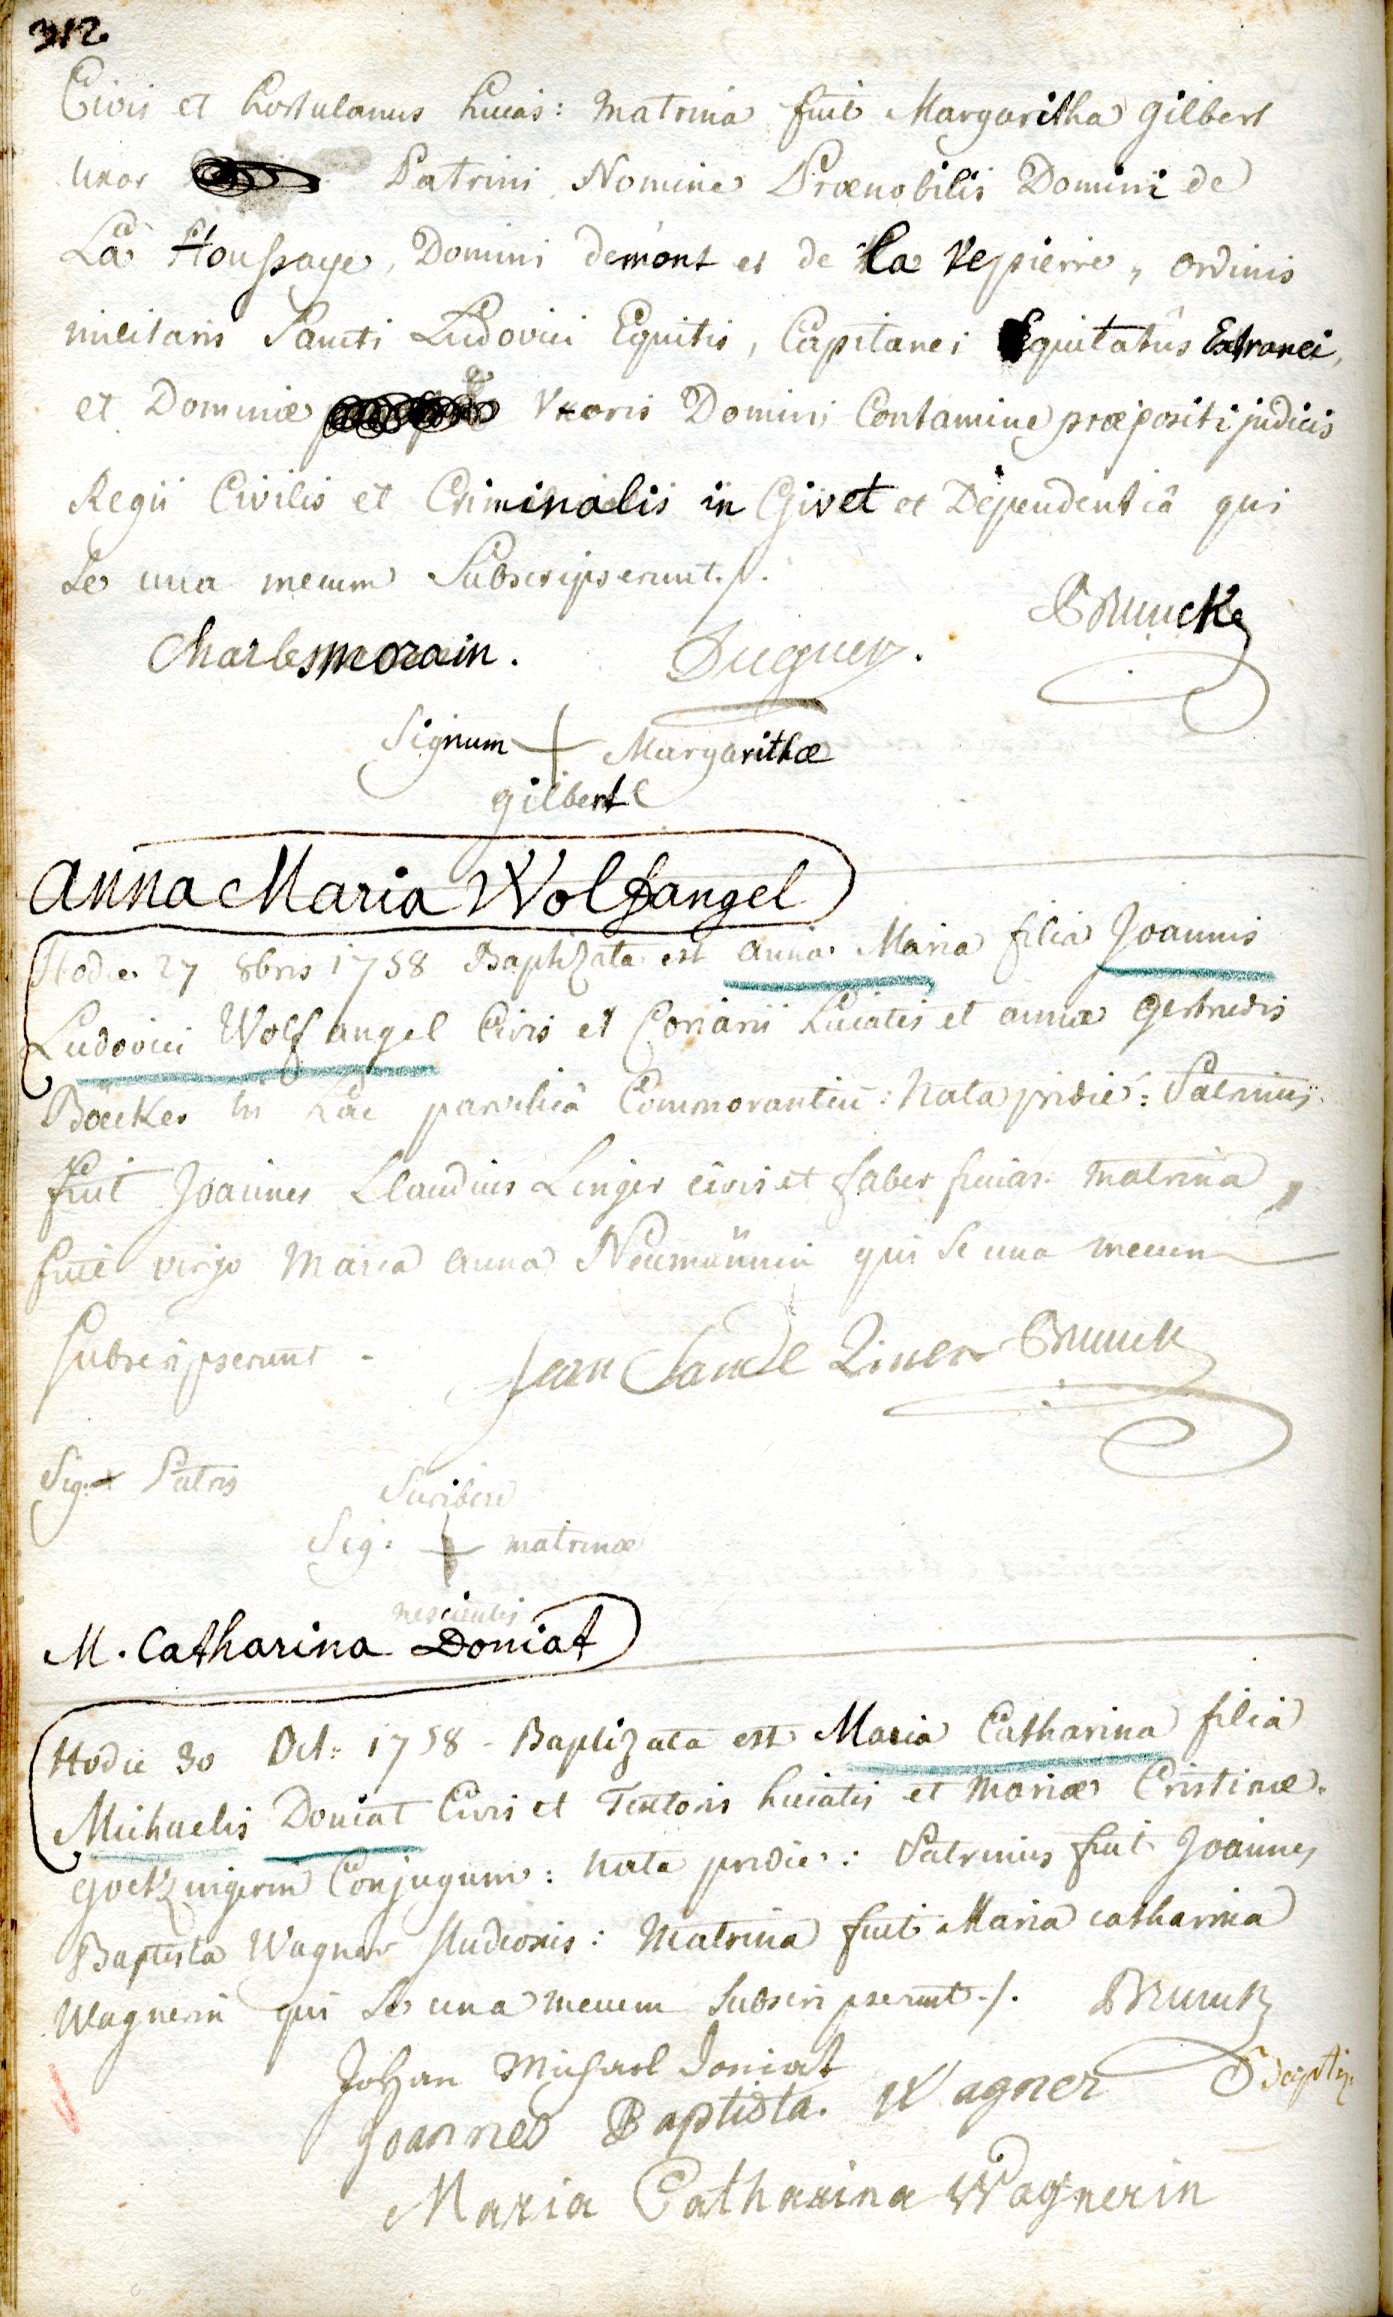 312
Civis et hortulanus hucias: Matrina fuit Margaritha Gilbert
uxor Patrini Nomine Prænobilis Domini de
La Houssaye, Domini demont et de la Vespierre, ordinis
militaris Sancti Ludovici Equitis, Capitanei Equitatûs Extranei,
et Dominæ Uxoris Domini Contamine præpositi judicis
Regii Civilis et Criminalis in Givet et Dependentiâ qui
se una mecum Subscripserunt./.
Bruncke
Charles morain.
Signum + Margarithæ
gilbert
Anna Maria Wolfangel
Hodie 27 8bris 1758 Baptizata est anna Maria filia Joannis
Ludovici Wolfangel Civis et Coriarii huiatis et annæ Gertrudis
in hac parochiâ Commorantiū: Nata pridie: Patrinus
fuit Joannes Claudius Linger civis et faber huias: matrina
fuit virgo Maria Anna qui se una mecum
subscripserunt.
Jean Claude Brunck
Sig: + Patris
Scribere
Sig: + matrinæ
nescientis
M. Catharina Doniat
Hodie 30 Oct: 1758 - Baptizata est Maria Catharina filia
Michaelis Doniat Civis et Textoris huiatis et Mariæ Cristinæ
Goetzingerin Conjugum: Nata pridie: Patrinus fuit Joannes
Baptista Wagner studiosus: Matrina fuit Maria catharina
Wagnerin qui se una mecum subscripserunt./. Brunck
Johan Michael Doniat
Joannes Baptista. Wagner
Maria Catharina Wagnerin